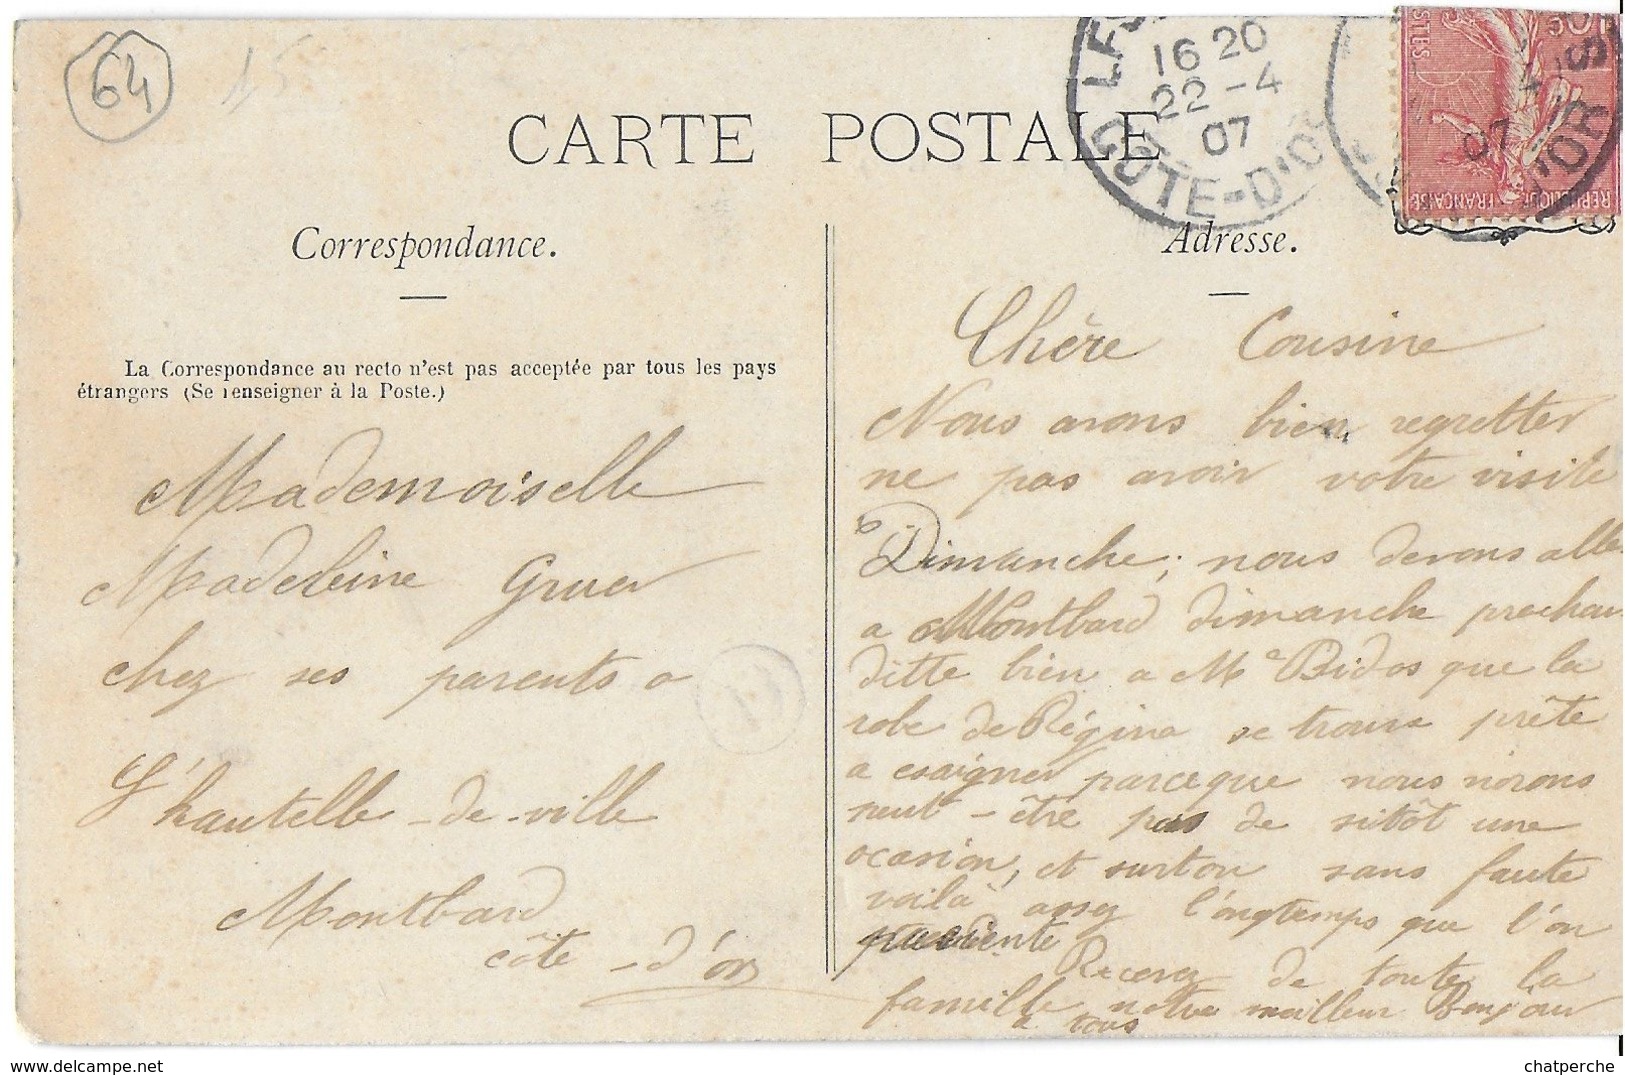 64
15
CARTE POSTALE
16 20
22-4
07
CÔTE-D'OR
07
D'OR
POSTES
RÉPUBLIQUE FRANÇAISE
Correspondance.
Adresse.
La Correspondance au recto n'est pas acceptée par tous les pays
étrangers (Se renseigner à la Poste.)
Mademoiselle
Madeleine Gruer
chez ses parents a
L'hautelle-de-ville
Montbard
côte-d'or
Chère Cousine
Nous avons bien regretter
ne pas avoir votre visite
Dimanche; nous devons aller
a Montbard dimanche prochain
ditte bien a Me Bidos que la
robe de Régina se trouve prête
a esaigner parceque nous norons
peut-être pas de sitôt une
ocasion, et surtou sans faute
voilà assez l'ongtemps que l'on
Recevez de toute la
famille notre meilleur Bonjour
a tous
chatperche